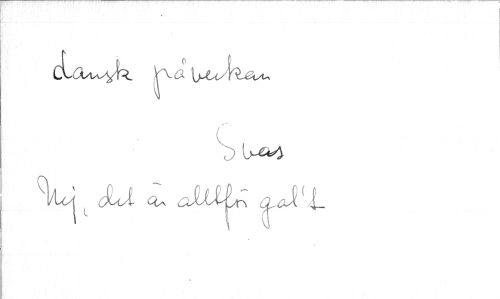 dansk påverkan
Svas
Nej, det är alltför gal't